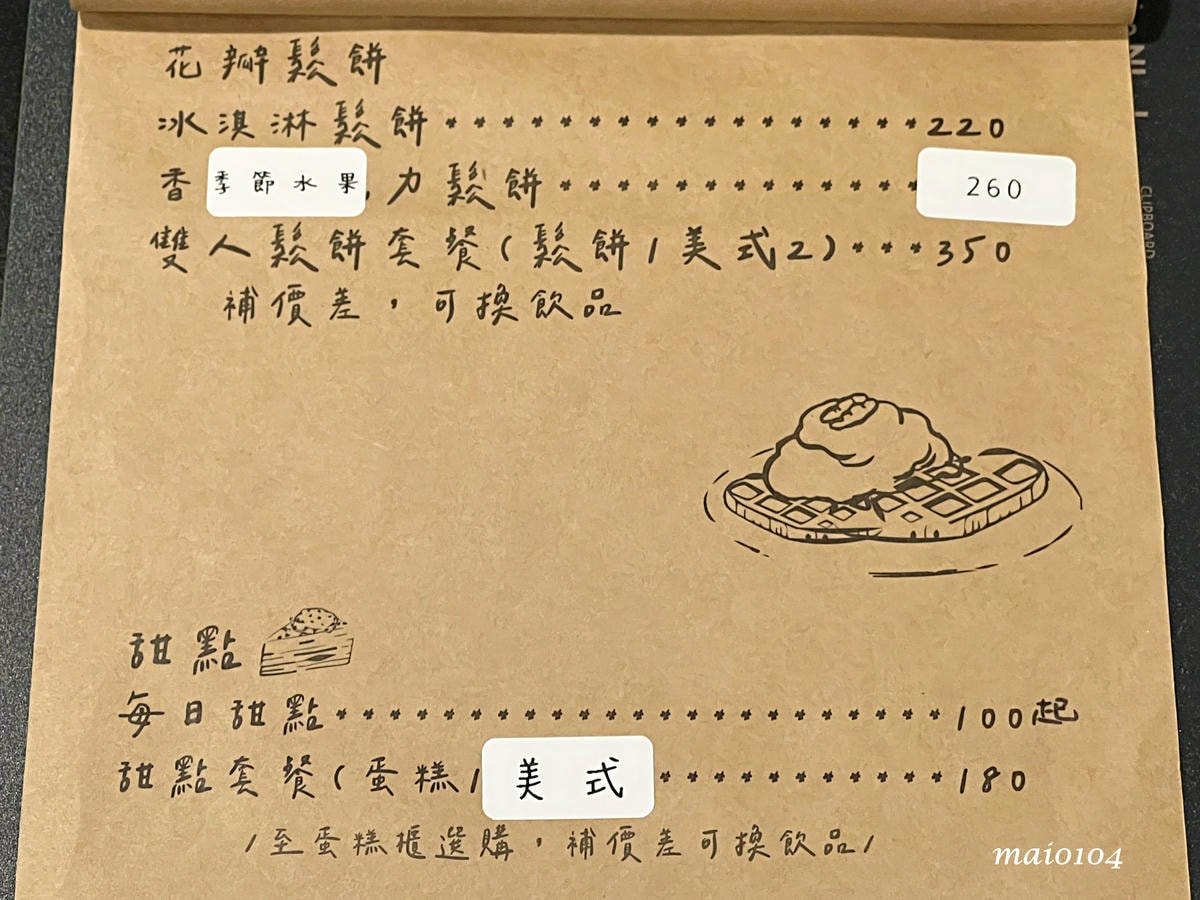 花瓣鬆餅
冰淇淋鬆餅 220
香 季節水果 力鬆餅 260
雙人鬆餅套餐(鬆餅1美式2) 350
補價差，可換飲品
甜點
每日甜點 100起
甜點套餐(蛋糕1 美式 180
/至蛋糕櫃選購，補價差可換飲品/
CLIPBOARD
maio104